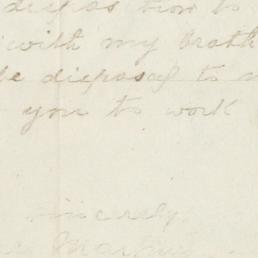 dispos tion to
with my broth
be disposal to
you to work
incerely